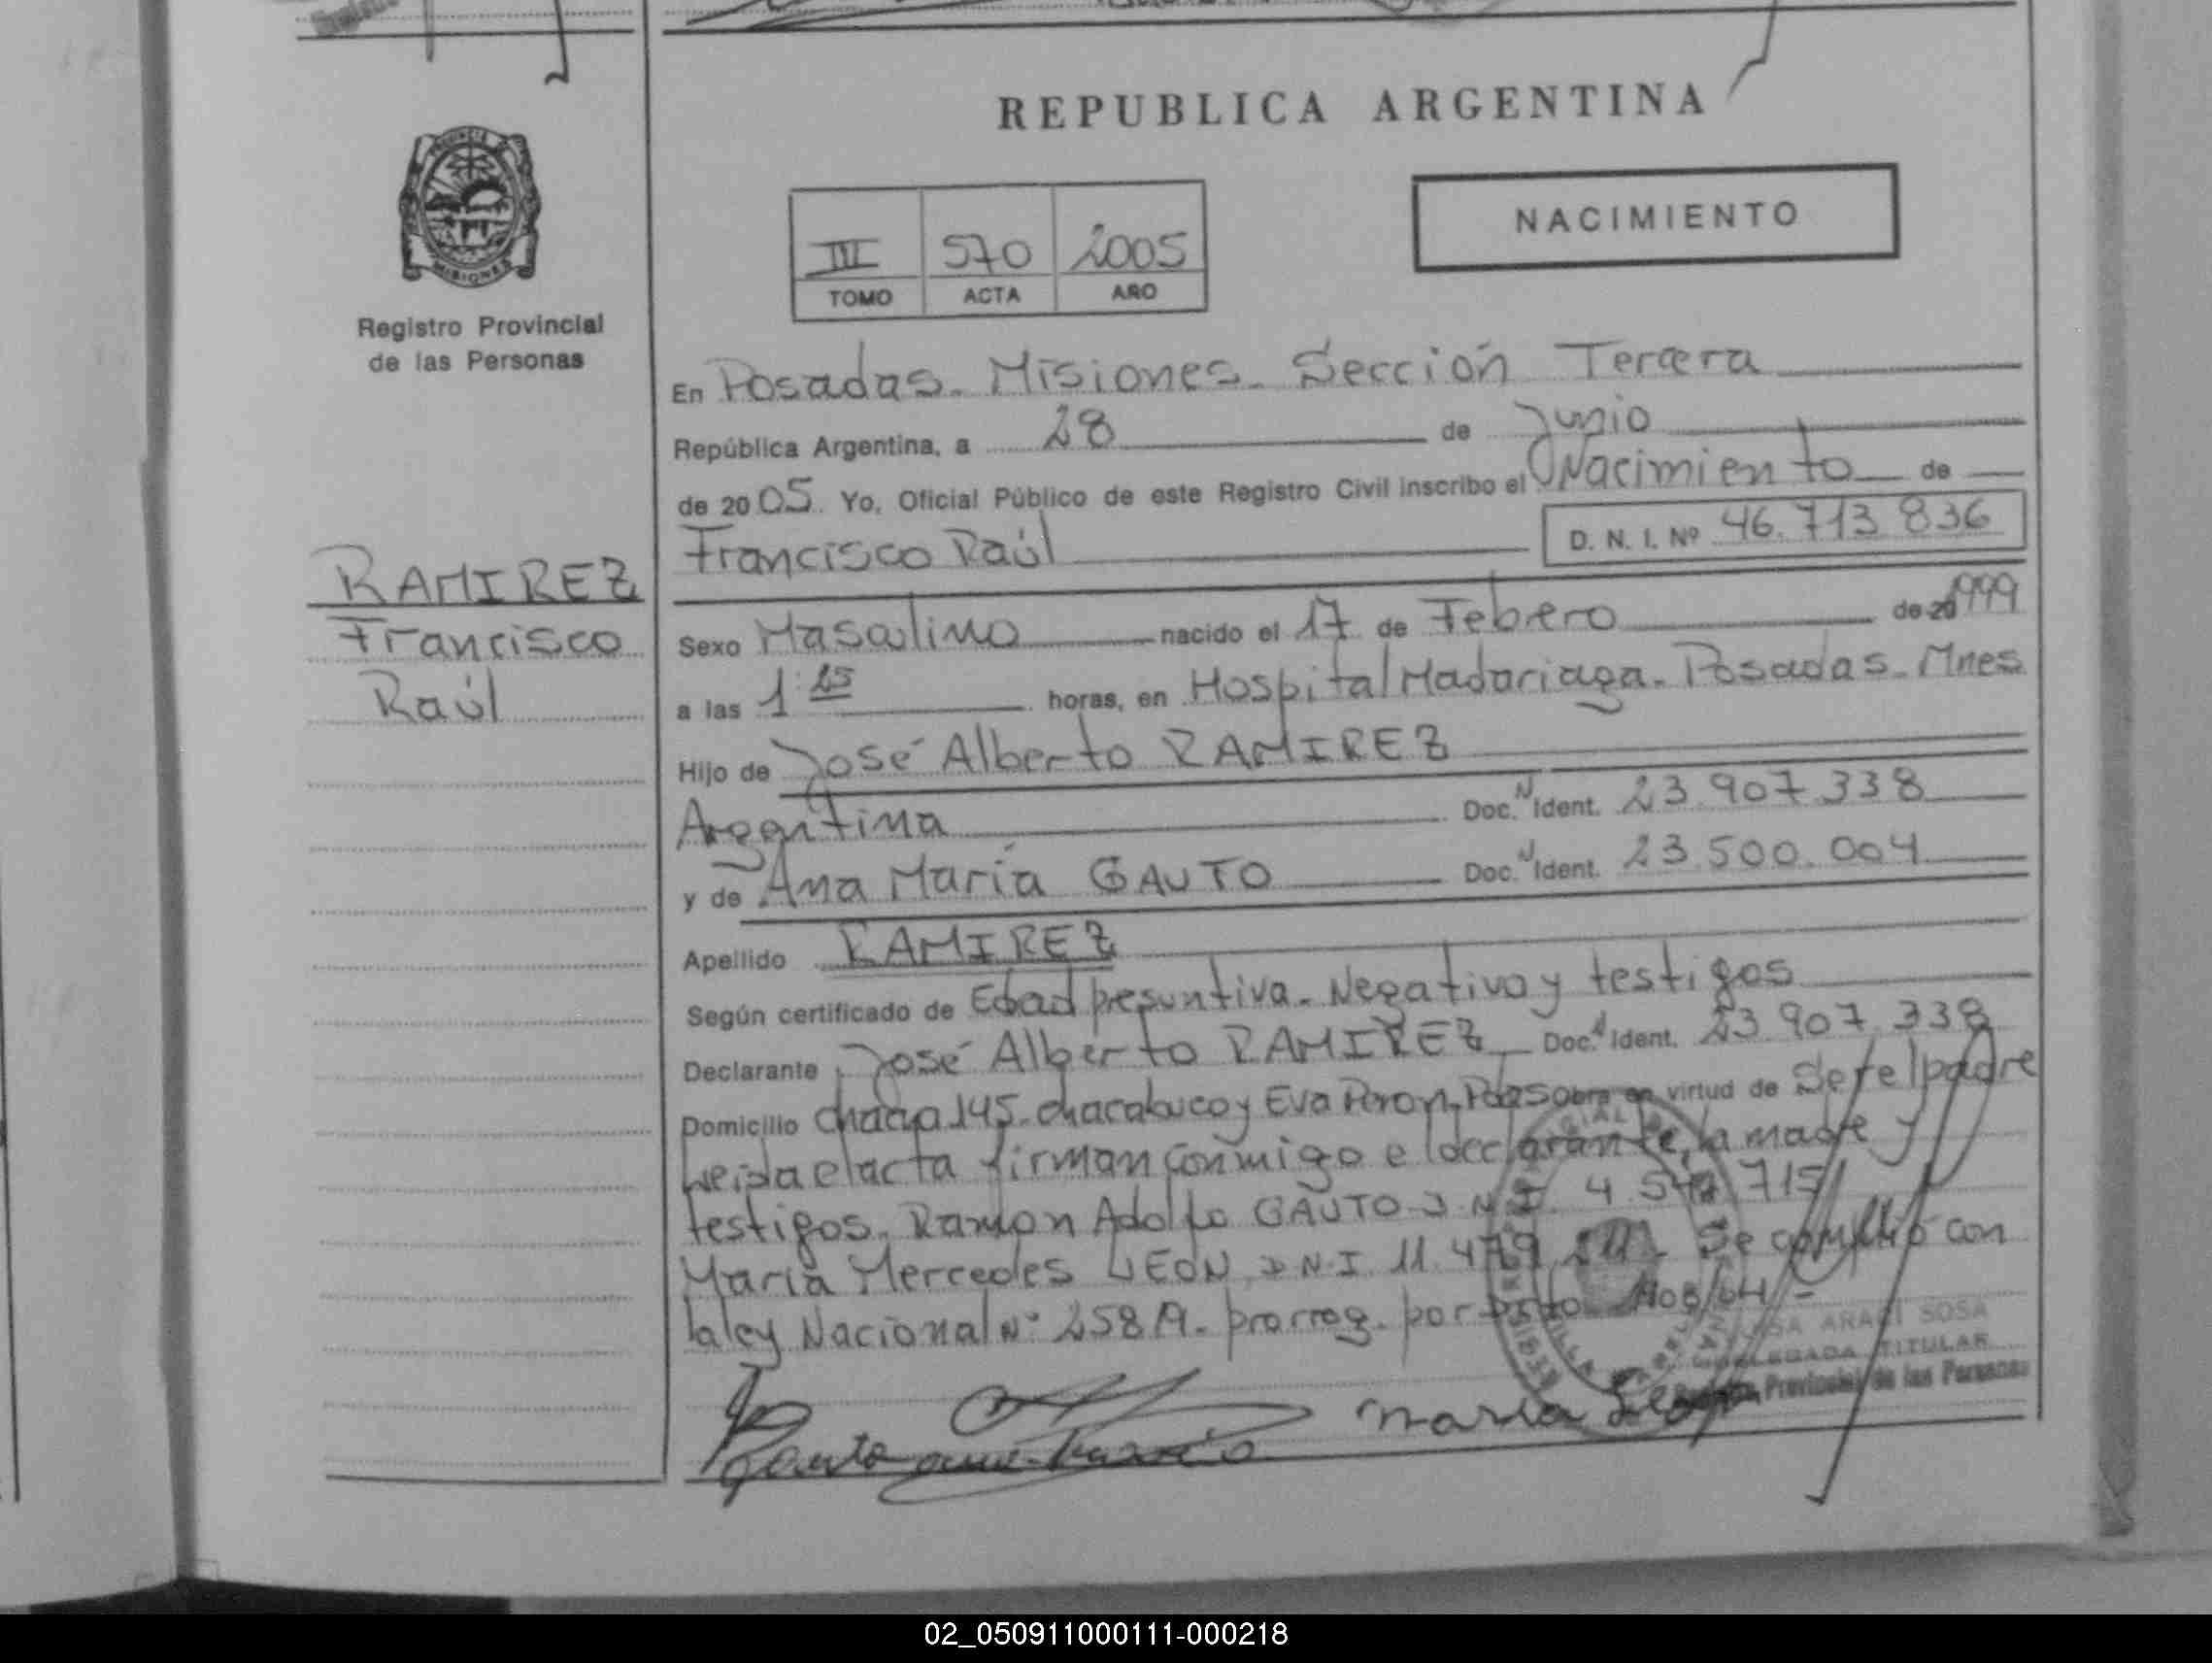 REPUBLICA ARGENTINA
PROVINCIA
MISIONES
Registro Provincial
de las Personas
NACIMIENTO
570 2005
TOMO ACTA AÑO
En Posadas. Misiones. Sección Tercera
República Argentina, a 28 de Junio
de 2005. Yo, Oficial Público de este Registro Civil inscribo el Nacimiento de
Francisco Raúl D. N. I. Nº 46.713.836
RAMIREZ
Francisco
Raúl
Sexo Masculino nacido el 17 de Febrero de 20 1999
a las 1:25 horas, en Hospital Madariaga. Posadas. Mnes
Hijo de José Alberto RAMIREZ
Argentina Doc. N Ident. 23.907.338
y de Ana María GAUTO Doc. N Ident. 23.500.004
Apellido RAMIREZ
Según certificado de Edad presuntiva. Negativo y testigos
Declarante José Alberto RAMIREZ Doc. Ident. 23.907.338
Domicilio chacra 145. chacabuco y Eva Peron. Pdas obra en virtud de Ser el padre
Leida el acta firman conmigo el declarante, la madre y
testigos. Ramon Adolfo GAUTO D.N.I. 4. 715
Maria Mercedes LEON D.N.I. 11.479. Se cumplió con
la ley Nacional Nº 25819. prorrog. por
ARACI SOSA
DELEGADA TITULAR
Provincial de las Personas
Gauto ana María
Maria Leon
02_050911000111-000218